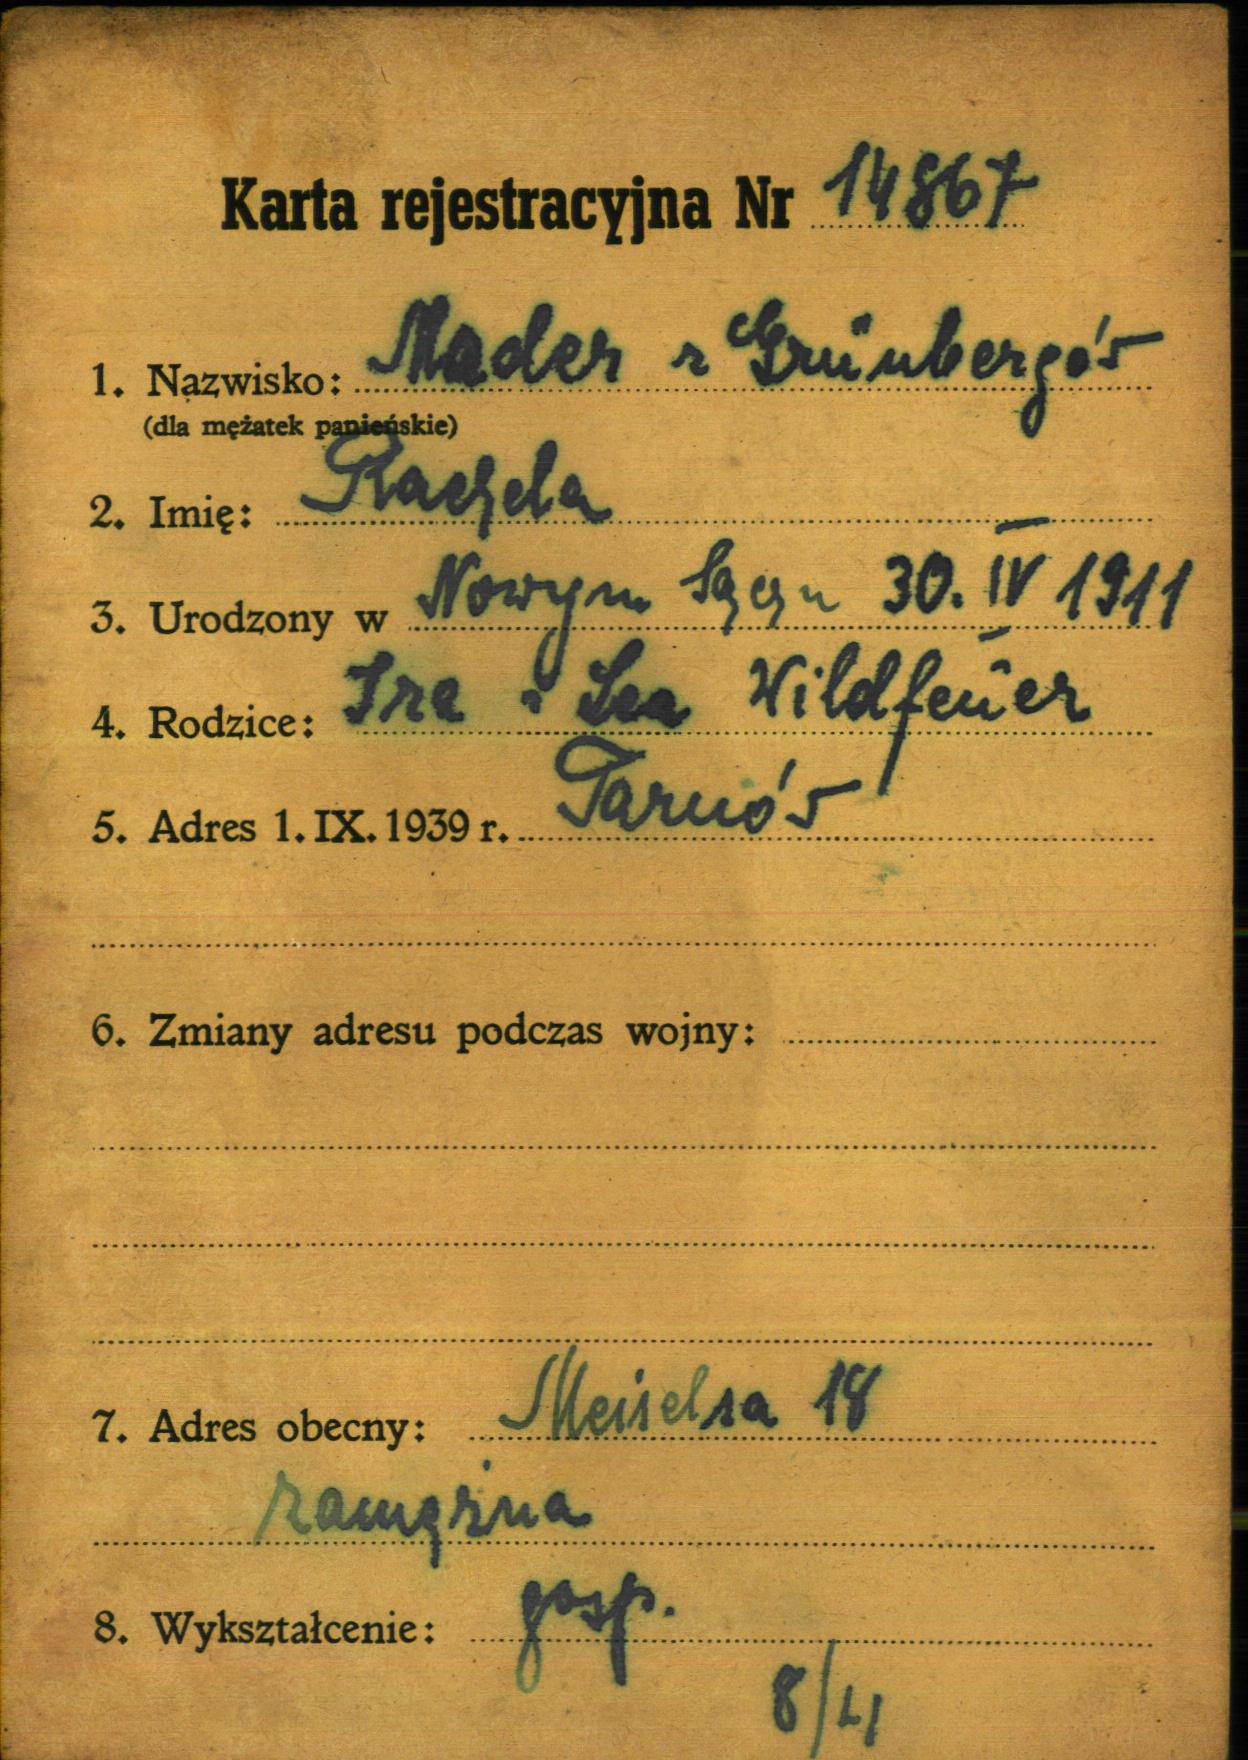 Karta rejestracyjna Nr 14867
1. Nazwisko: Mader z Grünbergów
(dla mężatek panieńskie)
2. Imię: Rachela
3. Urodzony w Nowym Sączu 30. IV 1911
4. Rodzice: i Lea Wildfeuer
5. Adres 1. IX. 1939 r. Tarnów
6. Zmiany adresu podczas wojny:
7. Adres obecny: Meiselsa 18
zamężna
8. Wykształcenie: gosp.